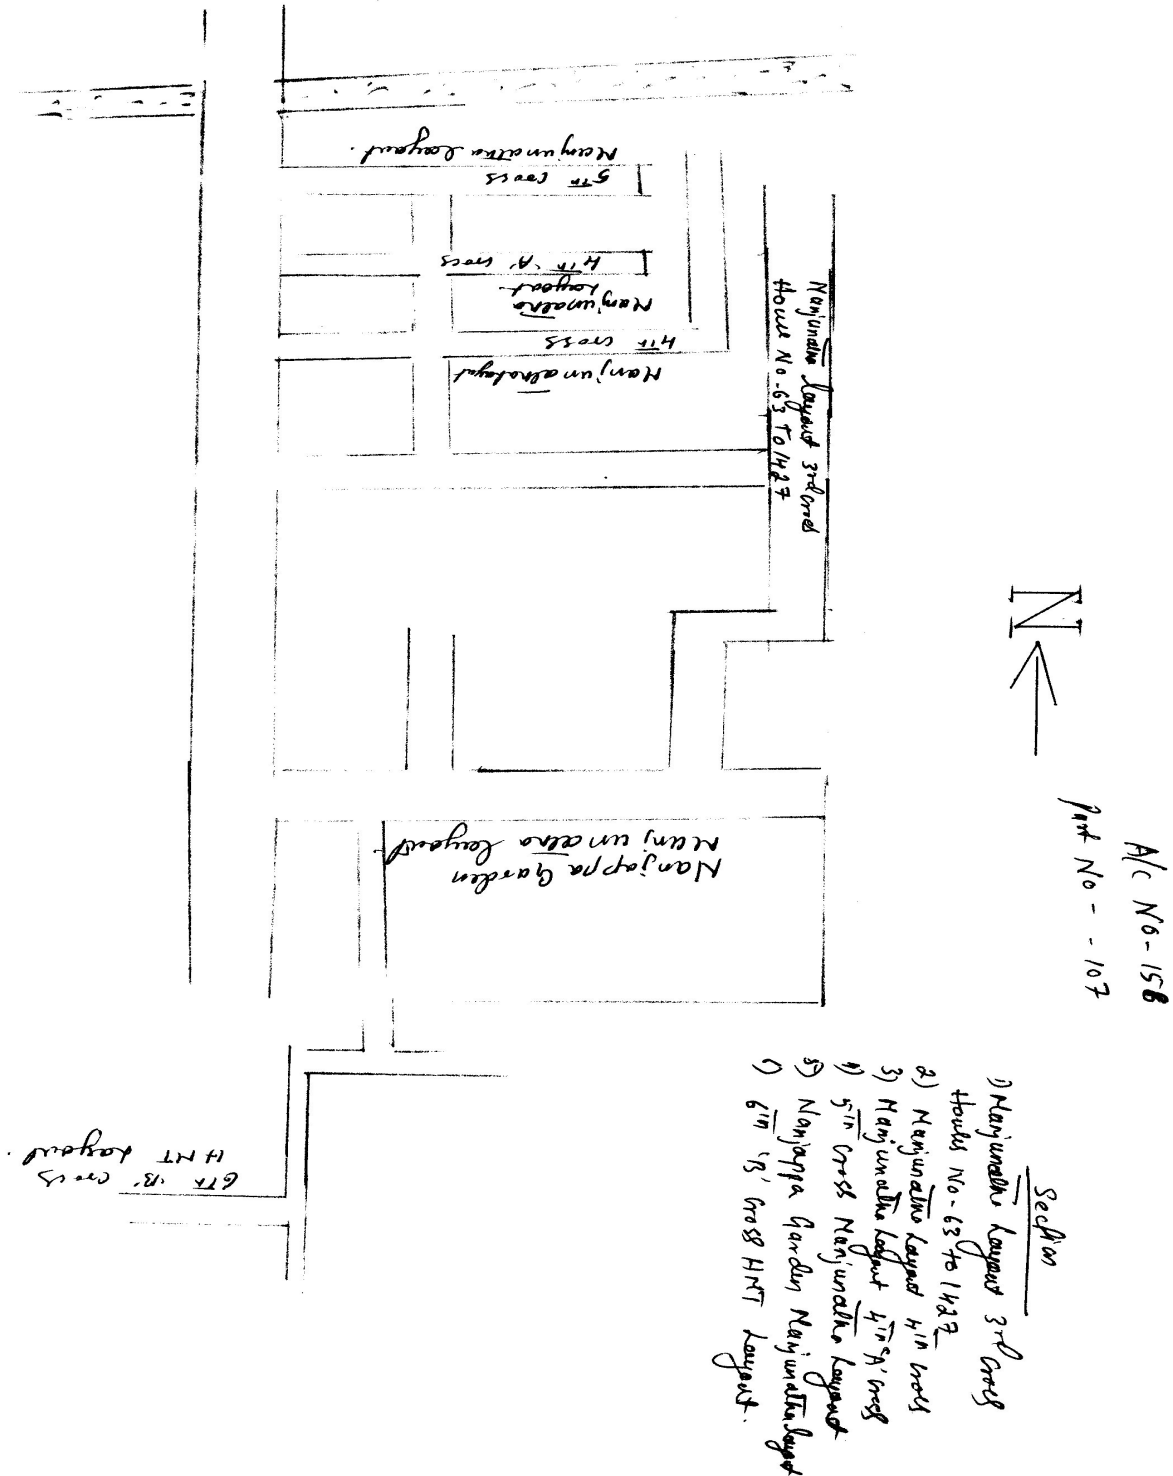 A/c No-158
Part No - - 107
N
Section
1) Manjunatha Layout 3rd Cross
Houses No-63 to 1427
2) Manjunatha Layout 4th Cross
3) Manjunatha Layout 4th 'A' Cross
4) 5th Cross Manjunatha Layout
5) Nanjappa Garden Manjunatha Layout
6th 'B' Cross HMT Layout.
Manjunatha Layout 3rd Cross
House No-63 To 1427
Manjunatha Layout.
5th Cross
4th 'A' Cross
Manjunatha
Layout
4th Cross
Manjunatha Layout
Nanjappa Garden
Manjunatha Layout
6th 'B' Cross
HMT Layout.